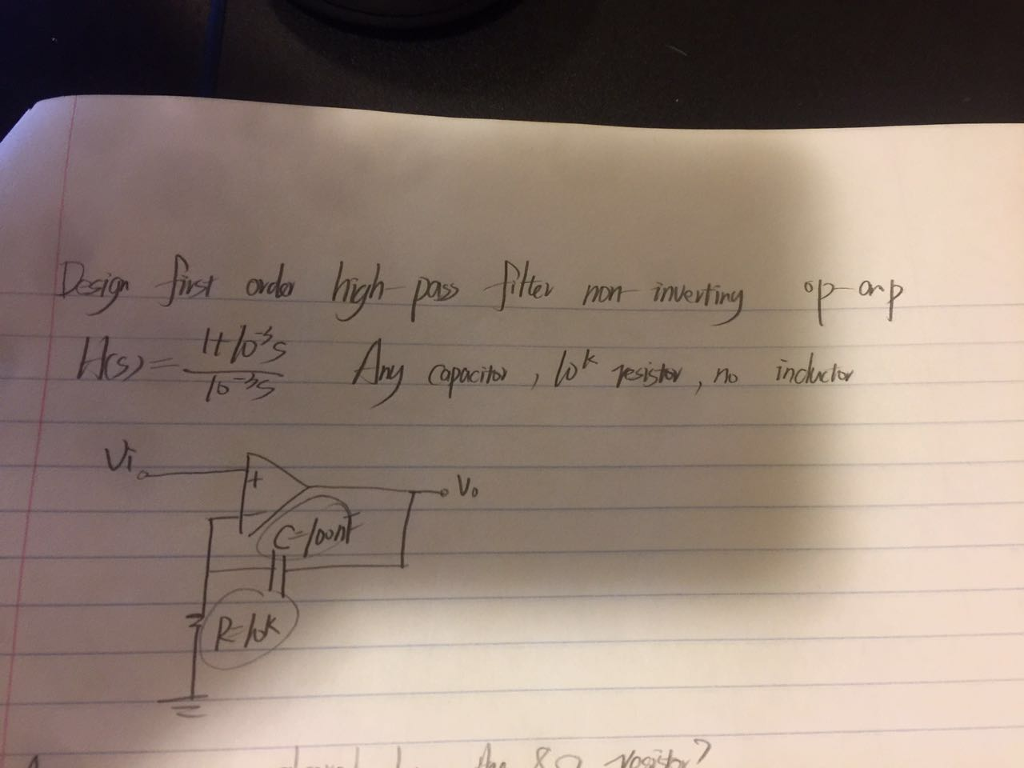 Design first order high-pass filter non-inverting op-amp
H(s) = 1+10⁻³s / 10⁻³s Any capacitor, 10k resistor, no inductor
Vi
+
Vo
-
C=100nF
R=10K
8Ω resistor?